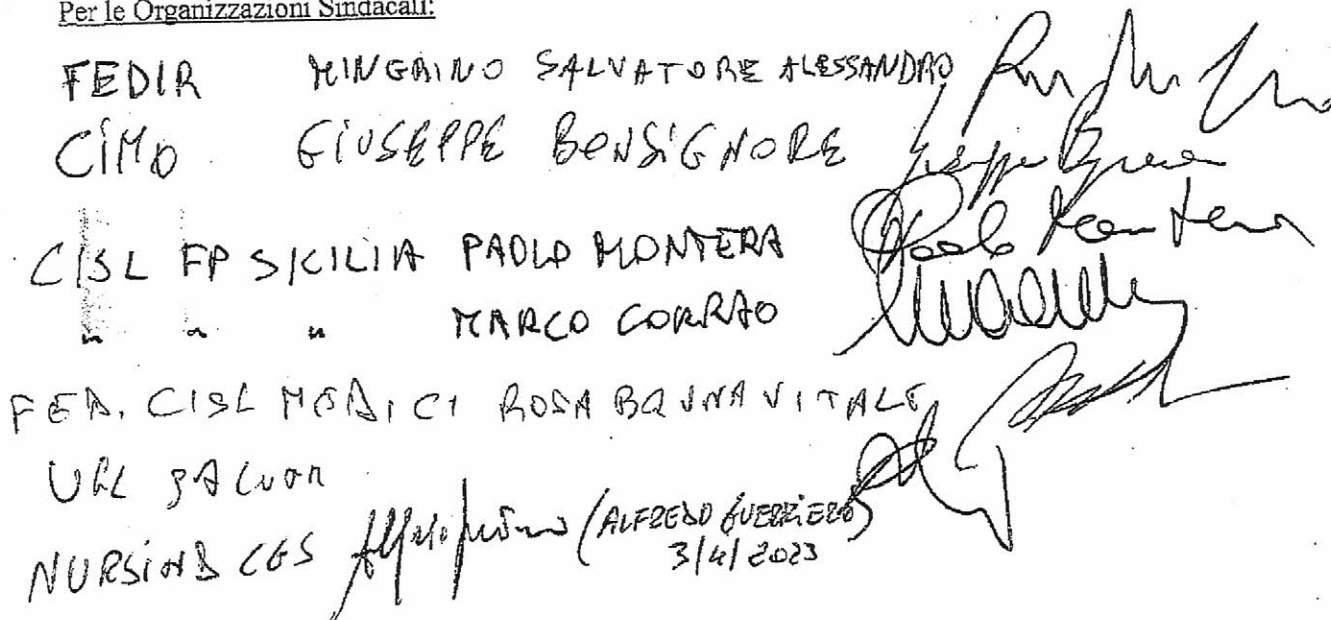 Per le Organizzazioni Sindacali:
FEDIR MINGRINO SALVATORE ALESSANDRO
CIMO GIUSEPPE BONSIGNORE
CISL FP SICILIA PAOLO MONTERA Paolo Montera
" " " MARCO CORRAO
FED. CISL MEDICI ROSA BRUNA VITALE
UGL
NURSIND CGS (ALFREDO GUERRIERO)
3/4/2023